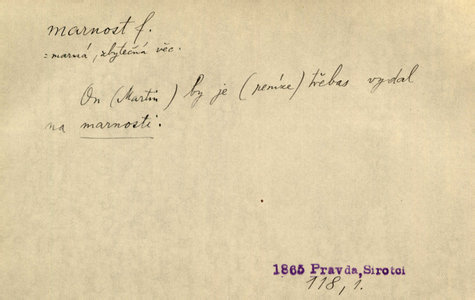 marnost f.
= marná, zbytečná věc.
On (Martin) by je (peníze) třebas vydal
na marnosti.
1865 Pravda, Sirotci
118, 1.